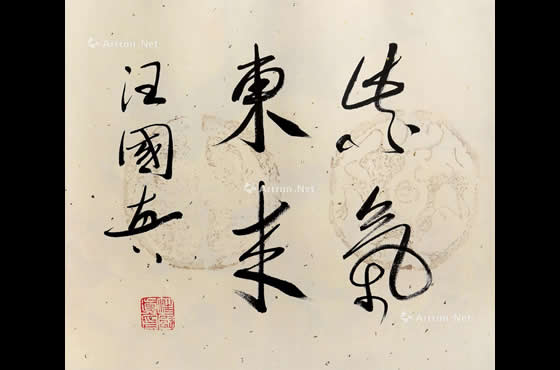 紫氣
東来
汪國真
Artron.Net
Artron.Net
Artron.Net